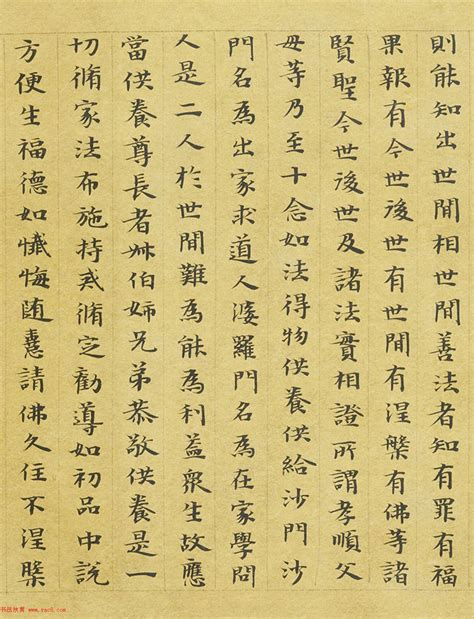 則能知出世間相世間善法者知有罪有福
果報有今世後世有世間有涅槃有佛等諸
賢聖今世後世及諸法實相證所謂孝順父
毋等乃至十念如法得物供養供給沙門沙
門名為出家求道人婆羅門名為在家學問
人是二人於世間難為能為利益眾生故應
當供養尊長者叔伯姉兄弟恭敬供養是一
切脩家法布施持戒脩定勸導如初品中說
方便生福德如懺悔随憙請佛久住不涅槃
书法欣赏 www.yac8.com